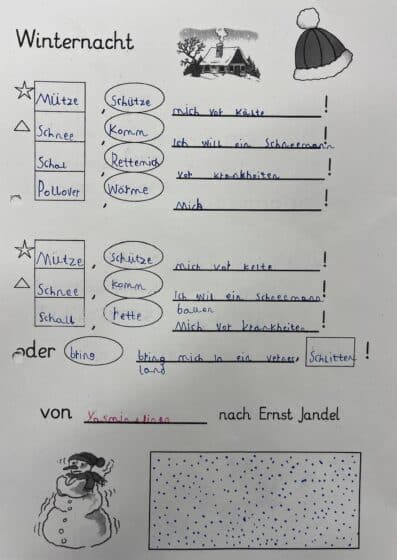 Winternacht
Mütze, Schütze mich vor Kälte!
Schnee, Komm Ich will ein Schneemann!
Schal, Rettemich vor krankheiten!
Pollover, Wärme Mich!
Mütze, Schütze mich vor kelte!
Schnee, komm Ich wil ein Schneemann!
bauen
Schall, rette Mich Vor krankheiten!
oder bring bring mich in ein vernes, Schlitten!
land
von nach Ernst Jandel